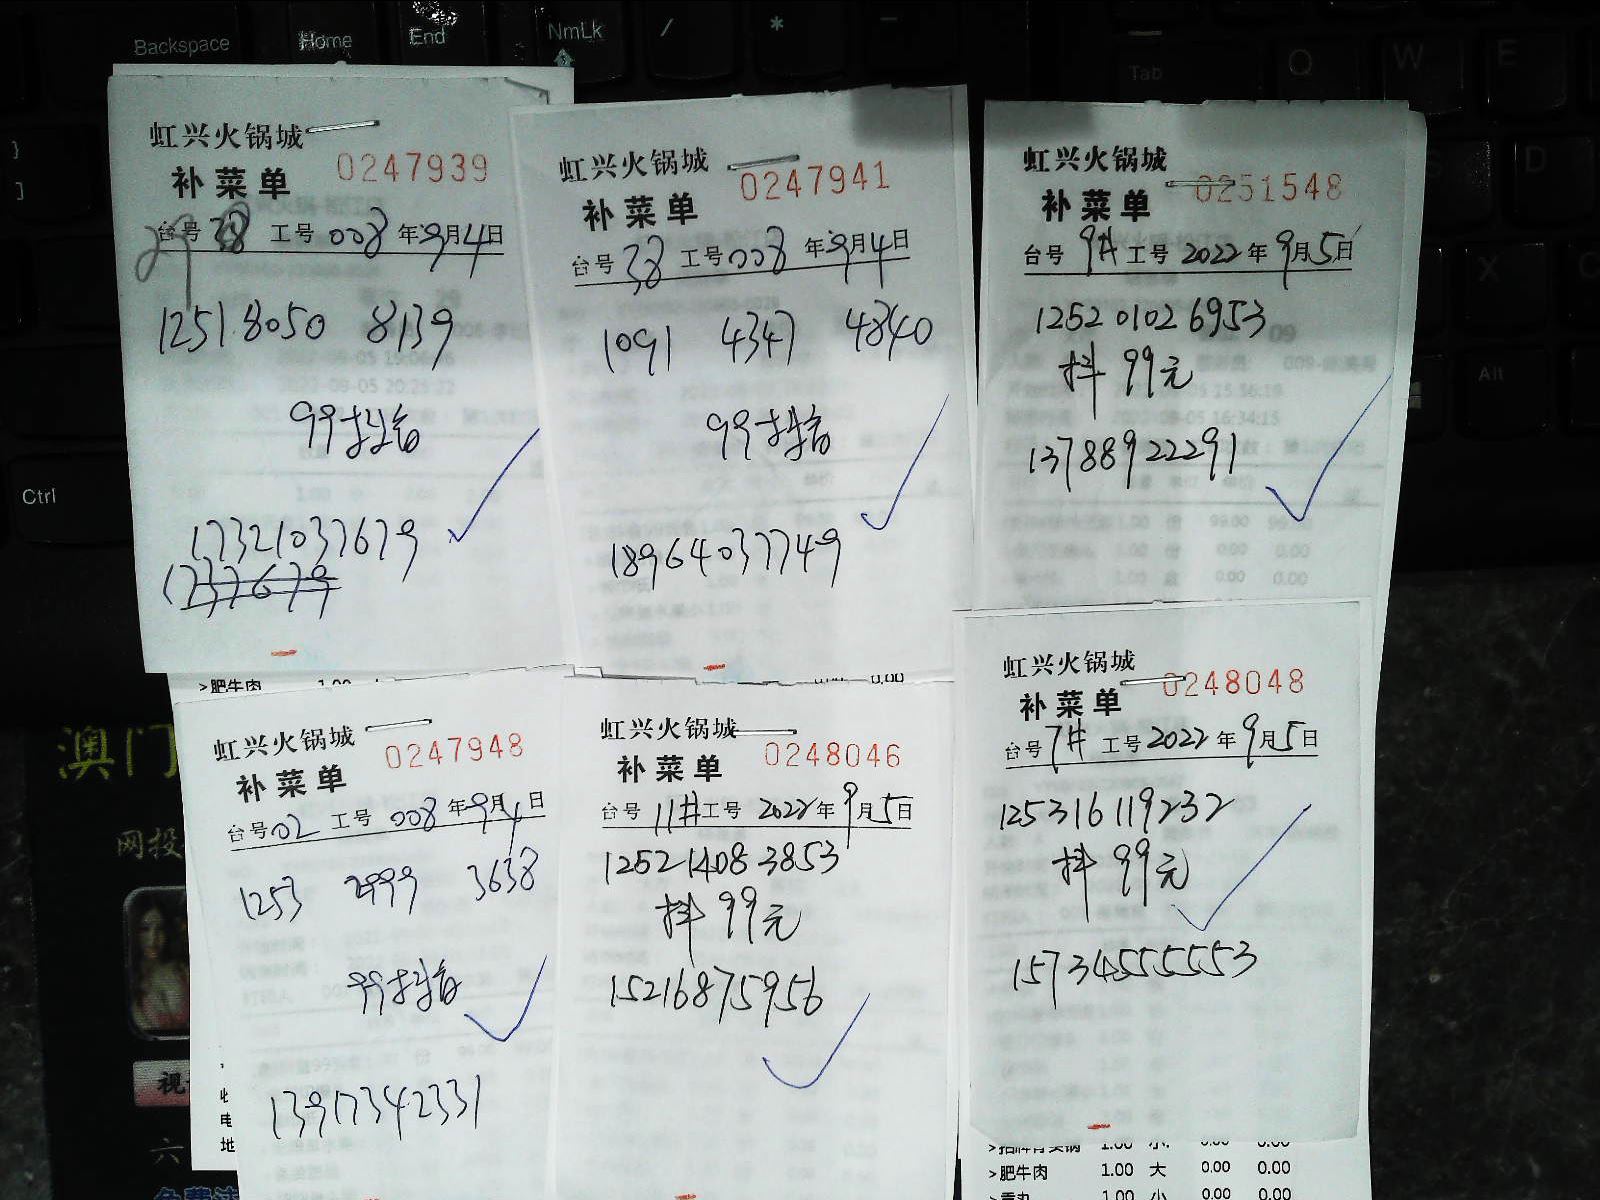 Backspace
Home
End
NmLk
/
*
Tab
Q
W
E
}
]
S
D
X
C
Ctrl
Alt
虹兴火锅城
0247939
补菜单
台号38 工号008 年9月4日
29
12518050 8139
99抖音
17321037679
虹兴火锅城
0247941
补菜单
台号38 工号008 年9月4日
1091 4347 4840
99抖音
18964037749
虹兴火锅城
0251548
补菜单
台号9# 工号2022年9月5日
12520102 6953
抖 99元
13788922291
>肥牛肉 1.00
0.00
虹兴火锅城
0247948
补菜单
台号02 工号008年9月4日
1253 2999 3638
99抖音
13917342331
虹兴火锅城
0248046
补菜单
台号11#工号2022年9月5日
12521408 3853
抖 99元
15216875956
虹兴火锅城
0248048
补菜单
台号7# 工号2022年9月5日
125316119232
抖 99元
15734555553
澳门
网投
视
六
免费
电
地
>肥牛肉 1.00 大 0.00 0.00
1.00 小 0.00 0.00